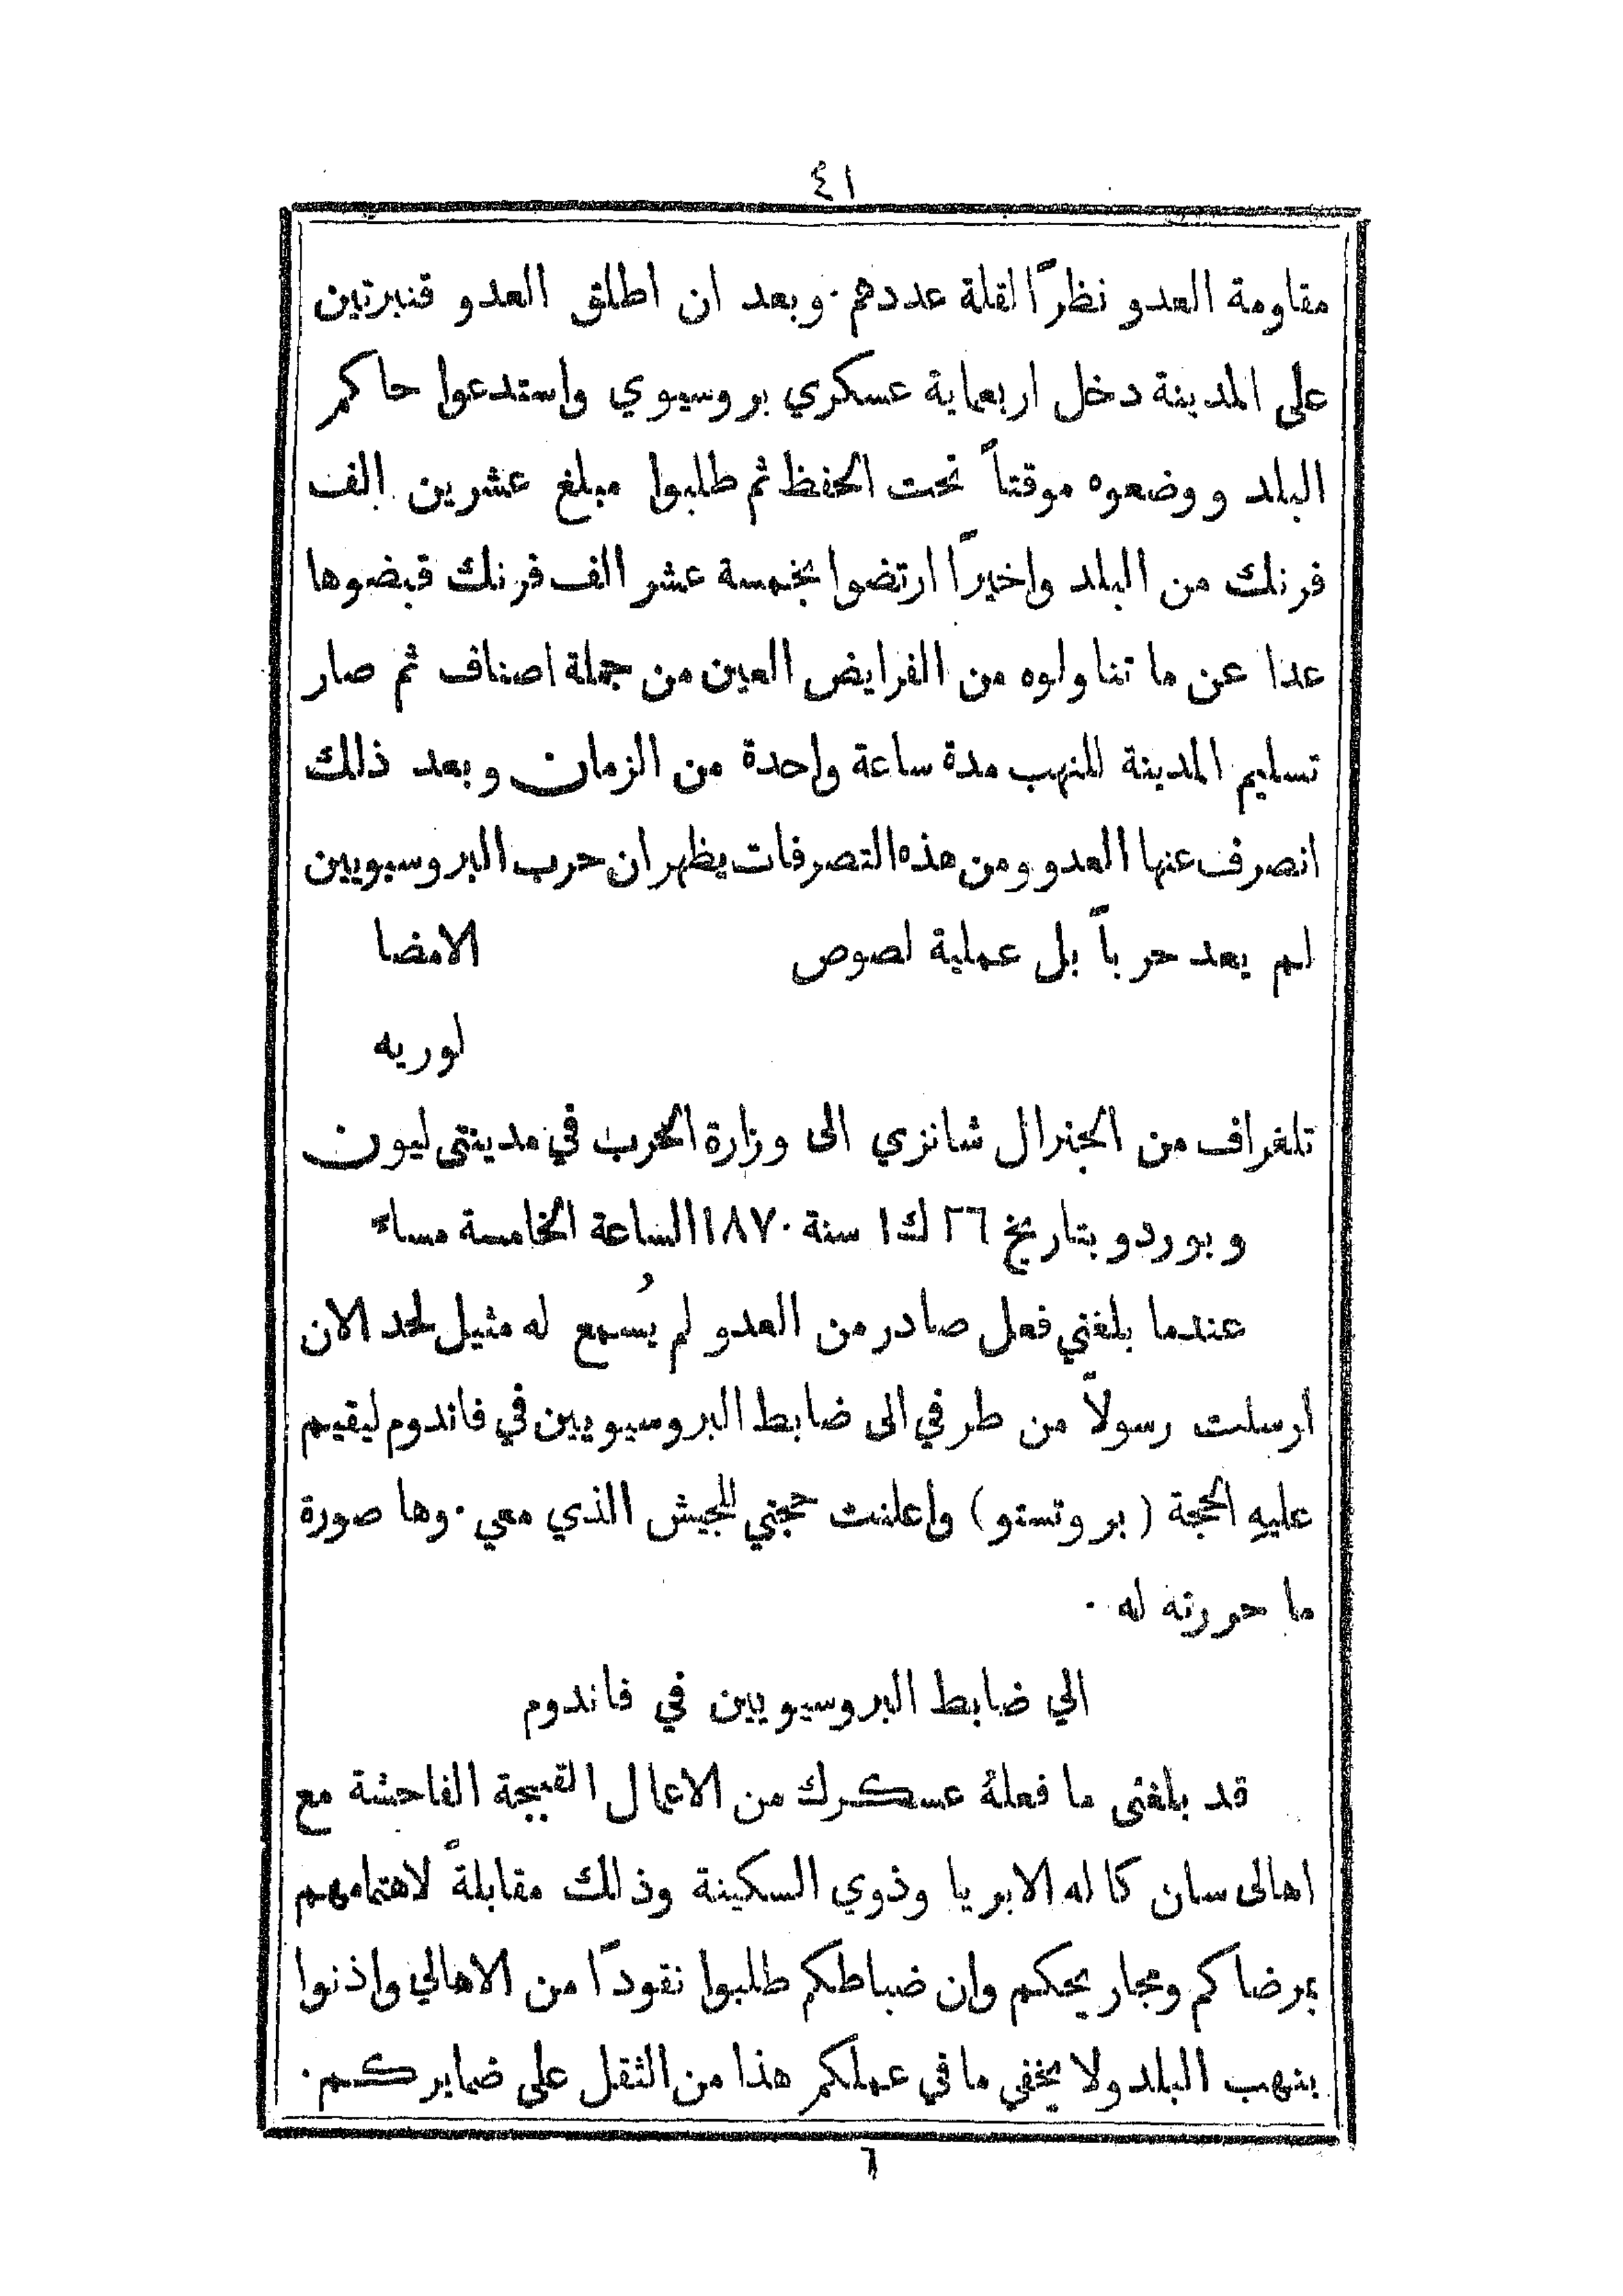 ٤١
مقاومة العدو نظرًا لقلة عددهم · وبعد ان اطلق العدو قنبرتين
على المدينة دخل اربعماية عسكري بروسيوي واستدعوا حاكم
البلد ووضعوه موقتاً تحت الحفظ ثم طلبوا مبلغ عشرين الف
فرنك من البلد واخيرًا ارتضوا بخمسة عشر الف فرنك قبضوها
عدا عن ما تناولوه من الفرايض العين من جملة اصناف ثم صار
تسليم المدينة للنهب مدة ساعة واحدة من الزمان وبعد ذلك
انصرف عنها العدو ومن هذه التصرفات يظهر ان حرب البروسيويين
لم يعد حرباً بل عملية لصوص الامضا
لوريه
تلغراف من الجنرال شانزي الى وزارة الحرب في مدينتى ليون
وبوردو بتاريخ ٢٦ ك١ سنة ١٨٧٠ الساعة الخامسة مساءً
عندما بلغني فعل صادر من العدو لم يُسمع له مثيل لحد الان
ارسلت رسولاً من طرفي الى ضابط البروسيويين في فاندوم ليقيم
عليهِ الحجة ( بروتستو ) واعلنت حجتي للجيش الذي معي · وها صورة
ما حررته له ·
الي ضابط البروسيويين في فاندوم
قد بلغنى ما فعلهُ عسكرك من الاعمال القبيحة الفاحشة مع
اهالى سان كاله الابريا وذوي السكينة وذلك مقابلةً لاهتمامهم
بمرضاكم ومجاريحكم وان ضباطكم طلبوا نقودًا من الاهالي واذنوا
بنهب البلد ولا يخفي ما في عملكم هذا من الثقل على ضمايركم ·
٦